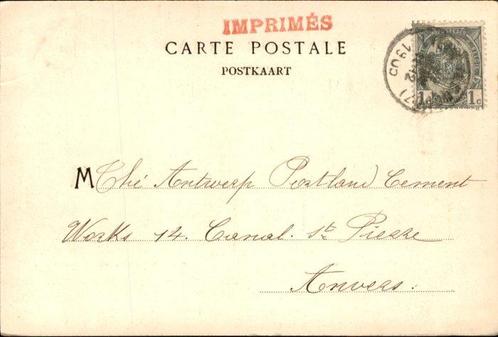 IMPRIMÉS
CARTE POSTALE
POSTKAART
1c 1c
M Thé Antwerp Portland Cement
Works 14. Canal. St. Pierre
Anvers.